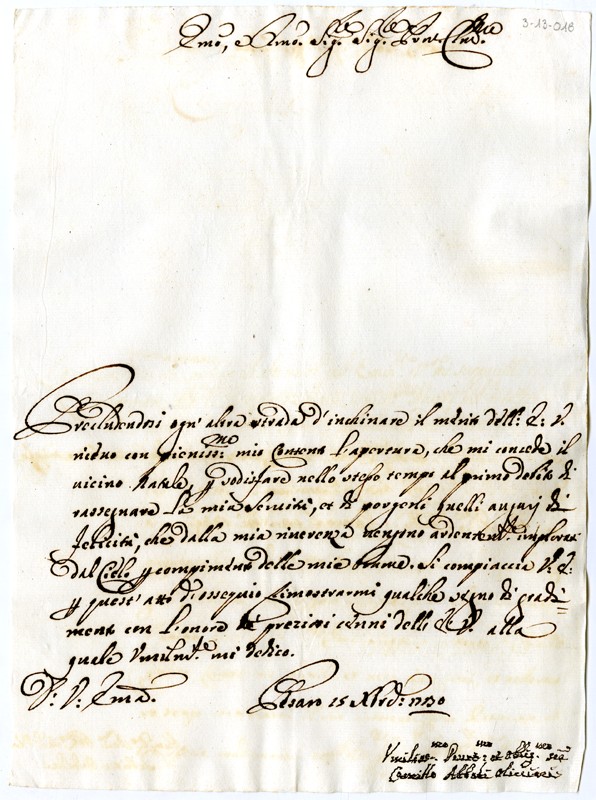 3-13-018
Illmo, e Rmo. Sig.re Sig.re Pron Clmo.
Precludendosi ogn'altra strada d'inchinare il merito dell: E: V.
riceuo con pieniss:mo mio Contento l'apertura, che mi concede il
uicino Natale, p sodisfare nello stesso tempo al primo debito di
rassegnare Le mia Seruitù, et di porgerli quelli augurj di
felicità, che dalla mia riuerenza uengono ardentem.te implorati
dal Cielo p compimento delle mie brame. Si compiaccia V: E:
p quest'atto d'ossequio dimostrarmi qualche segno di gradi=
mento con l'onore de preziosi cenni dell: E: V. alla
quale Vmilm.te mi dedico.
D: V: Illma.
Pesaro 25 Xbrd: 1730
Vmiliss.mo Deuot:mo et Oblig.mo Ser
Camillo Abbati Oliuieri